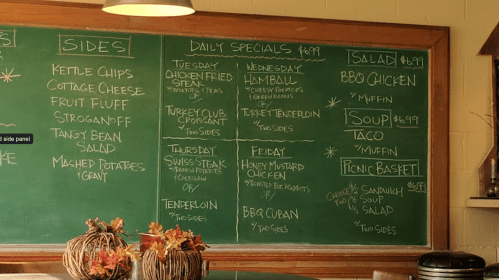 SIDES
KETTLE CHIPS
COTTAGE CHEESE
FRUIT FLUFF
STROGANOFF
TANGY BEAN
SALAD
MASHED POTATOES
+ GRAVY
DAILY SPECIALS $6.99
TUESDAY
CHICKEN FRIED
STEAK
POTATOES + PEAS
OR
TURKEY CLUB
CROISSANT
W/ TWO SIDES
WEDNESDAY
HAMBALL
W/ CHEESY POTATOES
OR
TURKEY TENDERLOIN
W/ TWO SIDES
THURSDAY
SWISS STEAK
POTATOES
+ COLESLAW
OR
TENDERLOIN
W/ TWO SIDES
FRIDAY
HONEY MUSTARD
CHICKEN
W/ ROASTED
OR
BBQ CUBAN
W/ TWO SIDES
SALAD $6.99
BBQ CHICKEN
W/ MUFFIN
SOUP $6.99
TACO
W/ MUFFIN
PICNIC BASKET
$6.99
CHOOSE TWO
1/2 SANDWICH
1/2 SOUP
1/2 SALAD
d side panel
KE